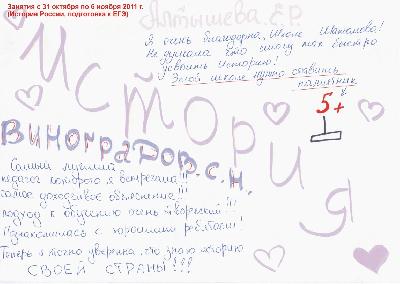 Занятия с 31 октября по 6 ноября 2011 г.
(История России, подготовка к ЕГЭ)
Алтышева Е.Р.
Я очень благодарна Школе Шаталова!
Не думала что смогу так быстро
усвоить историю!
Этой школе нужно ставить
памятник
5+
История
Виноградов.С.Н.
Самый лучший
педагог которого я встречала!!!
самое доходчивое объяснение!!!
подход к обучению очень творческий!!!
Познакомилась с хорошими ребятами!
Теперь я точно уверена, что знаю историю
СВОЕЙ СТРАНЫ!!!